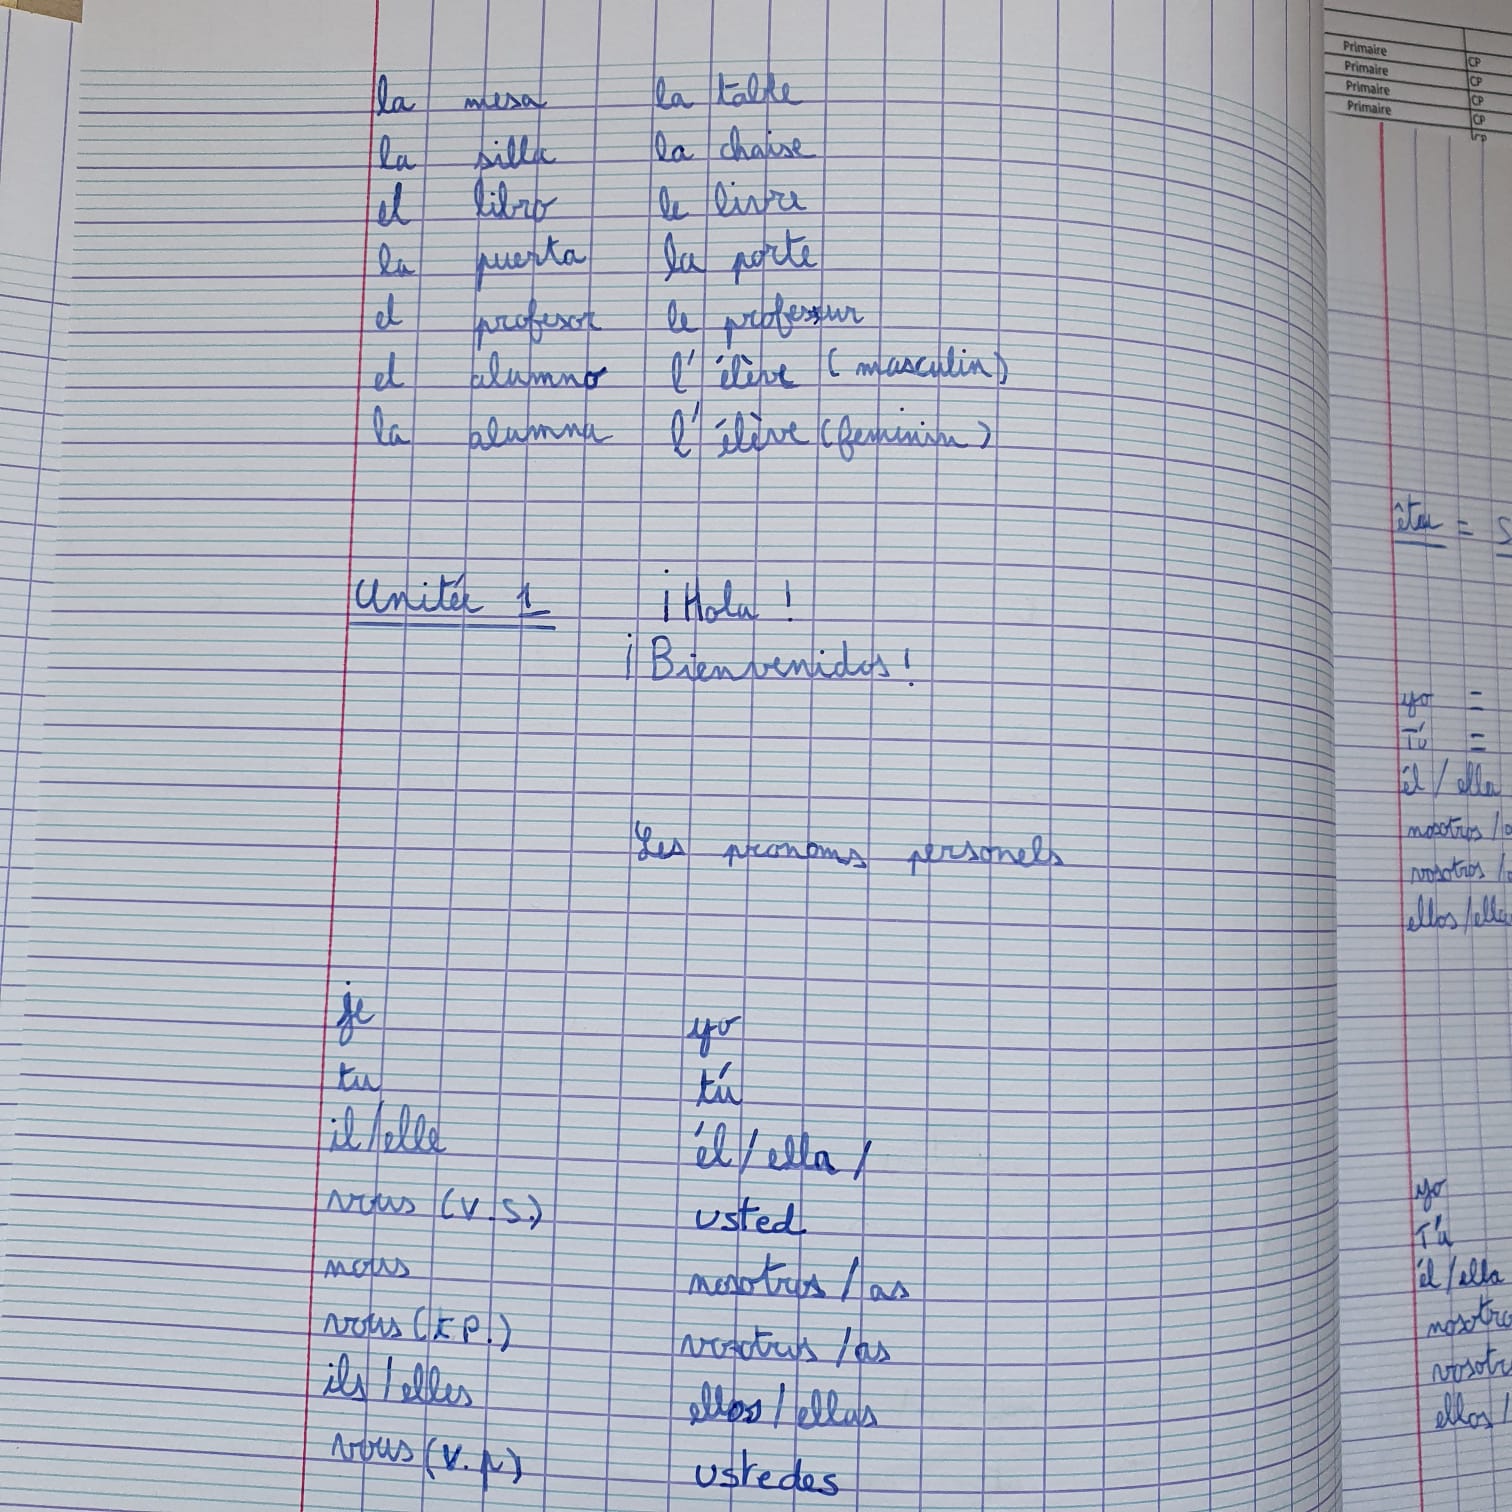 la mesa la table
la silla la chaise
el libro le livre
la puerta la porte
el profesor le professur
el alumno l'élève (masculin)
la alumna l'élève (feminim)
Unitée 1 ¡Hola!
¡Bienvenidos!
Les pronoms personels
je yo
tu tú
il/elle él/ella/
vous (v.s.) usted
nous nosotros/as
vous (t p.) vosotros/as
ils/elles ellos/ellas
vous (v.p) ustedes
Primaire CP
Primaire CP
Primaire CP
Primaire CP
CP
être = s
yo =
Tú =
él/ella
nosotros/
vosotros/
ellos/ella
yo
Tú
él/ella
nosotro
vosotr
ellos/